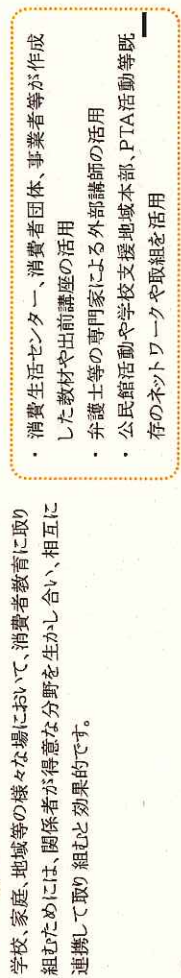 学校、家庭、地域等の様々な場において、消費者教育に取り
組むためには、関係者が得意な分野を生かし合い、相互に
連携して取り組むと効果的です。
・ 消費生活センター、消費者団体、事業者等が作成
した教材や出前講座の活用
・ 弁護士等の専門家による外部講師の活用
・ 公民館活動や学校支援地域本部、PTA活動等既
存のネットワークや取組を活用